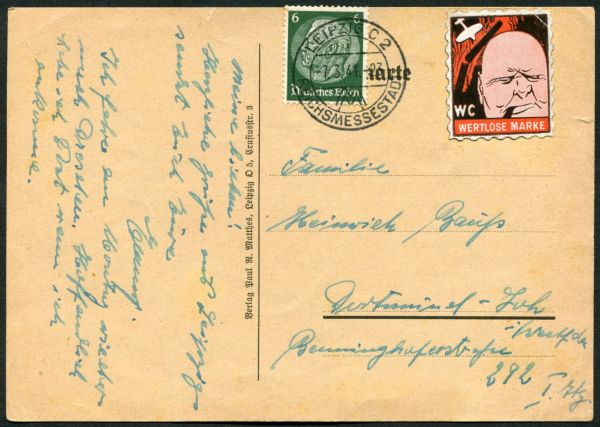 Meine Lieben!
Herzliche Grüße aus Leipzig
sendet Euch Eure
Ich fahre am Montag wieder
nach Dresden. Hoffentlich
lebe ich dort wenn ich
ankomme.
Verlag Paul R. Matthes, Leipzig O 5, Crusiusstr. 3
6 6
Deutsches Reich
LEIPZIG C 2
-7.3.41.
REICHSMESSESTADT
karte
WC
WERTLOSE MARKE
Familie
Heinrich
Dortmund-
i/Westfalen
Benninghoferstraße
292
I. Etg.